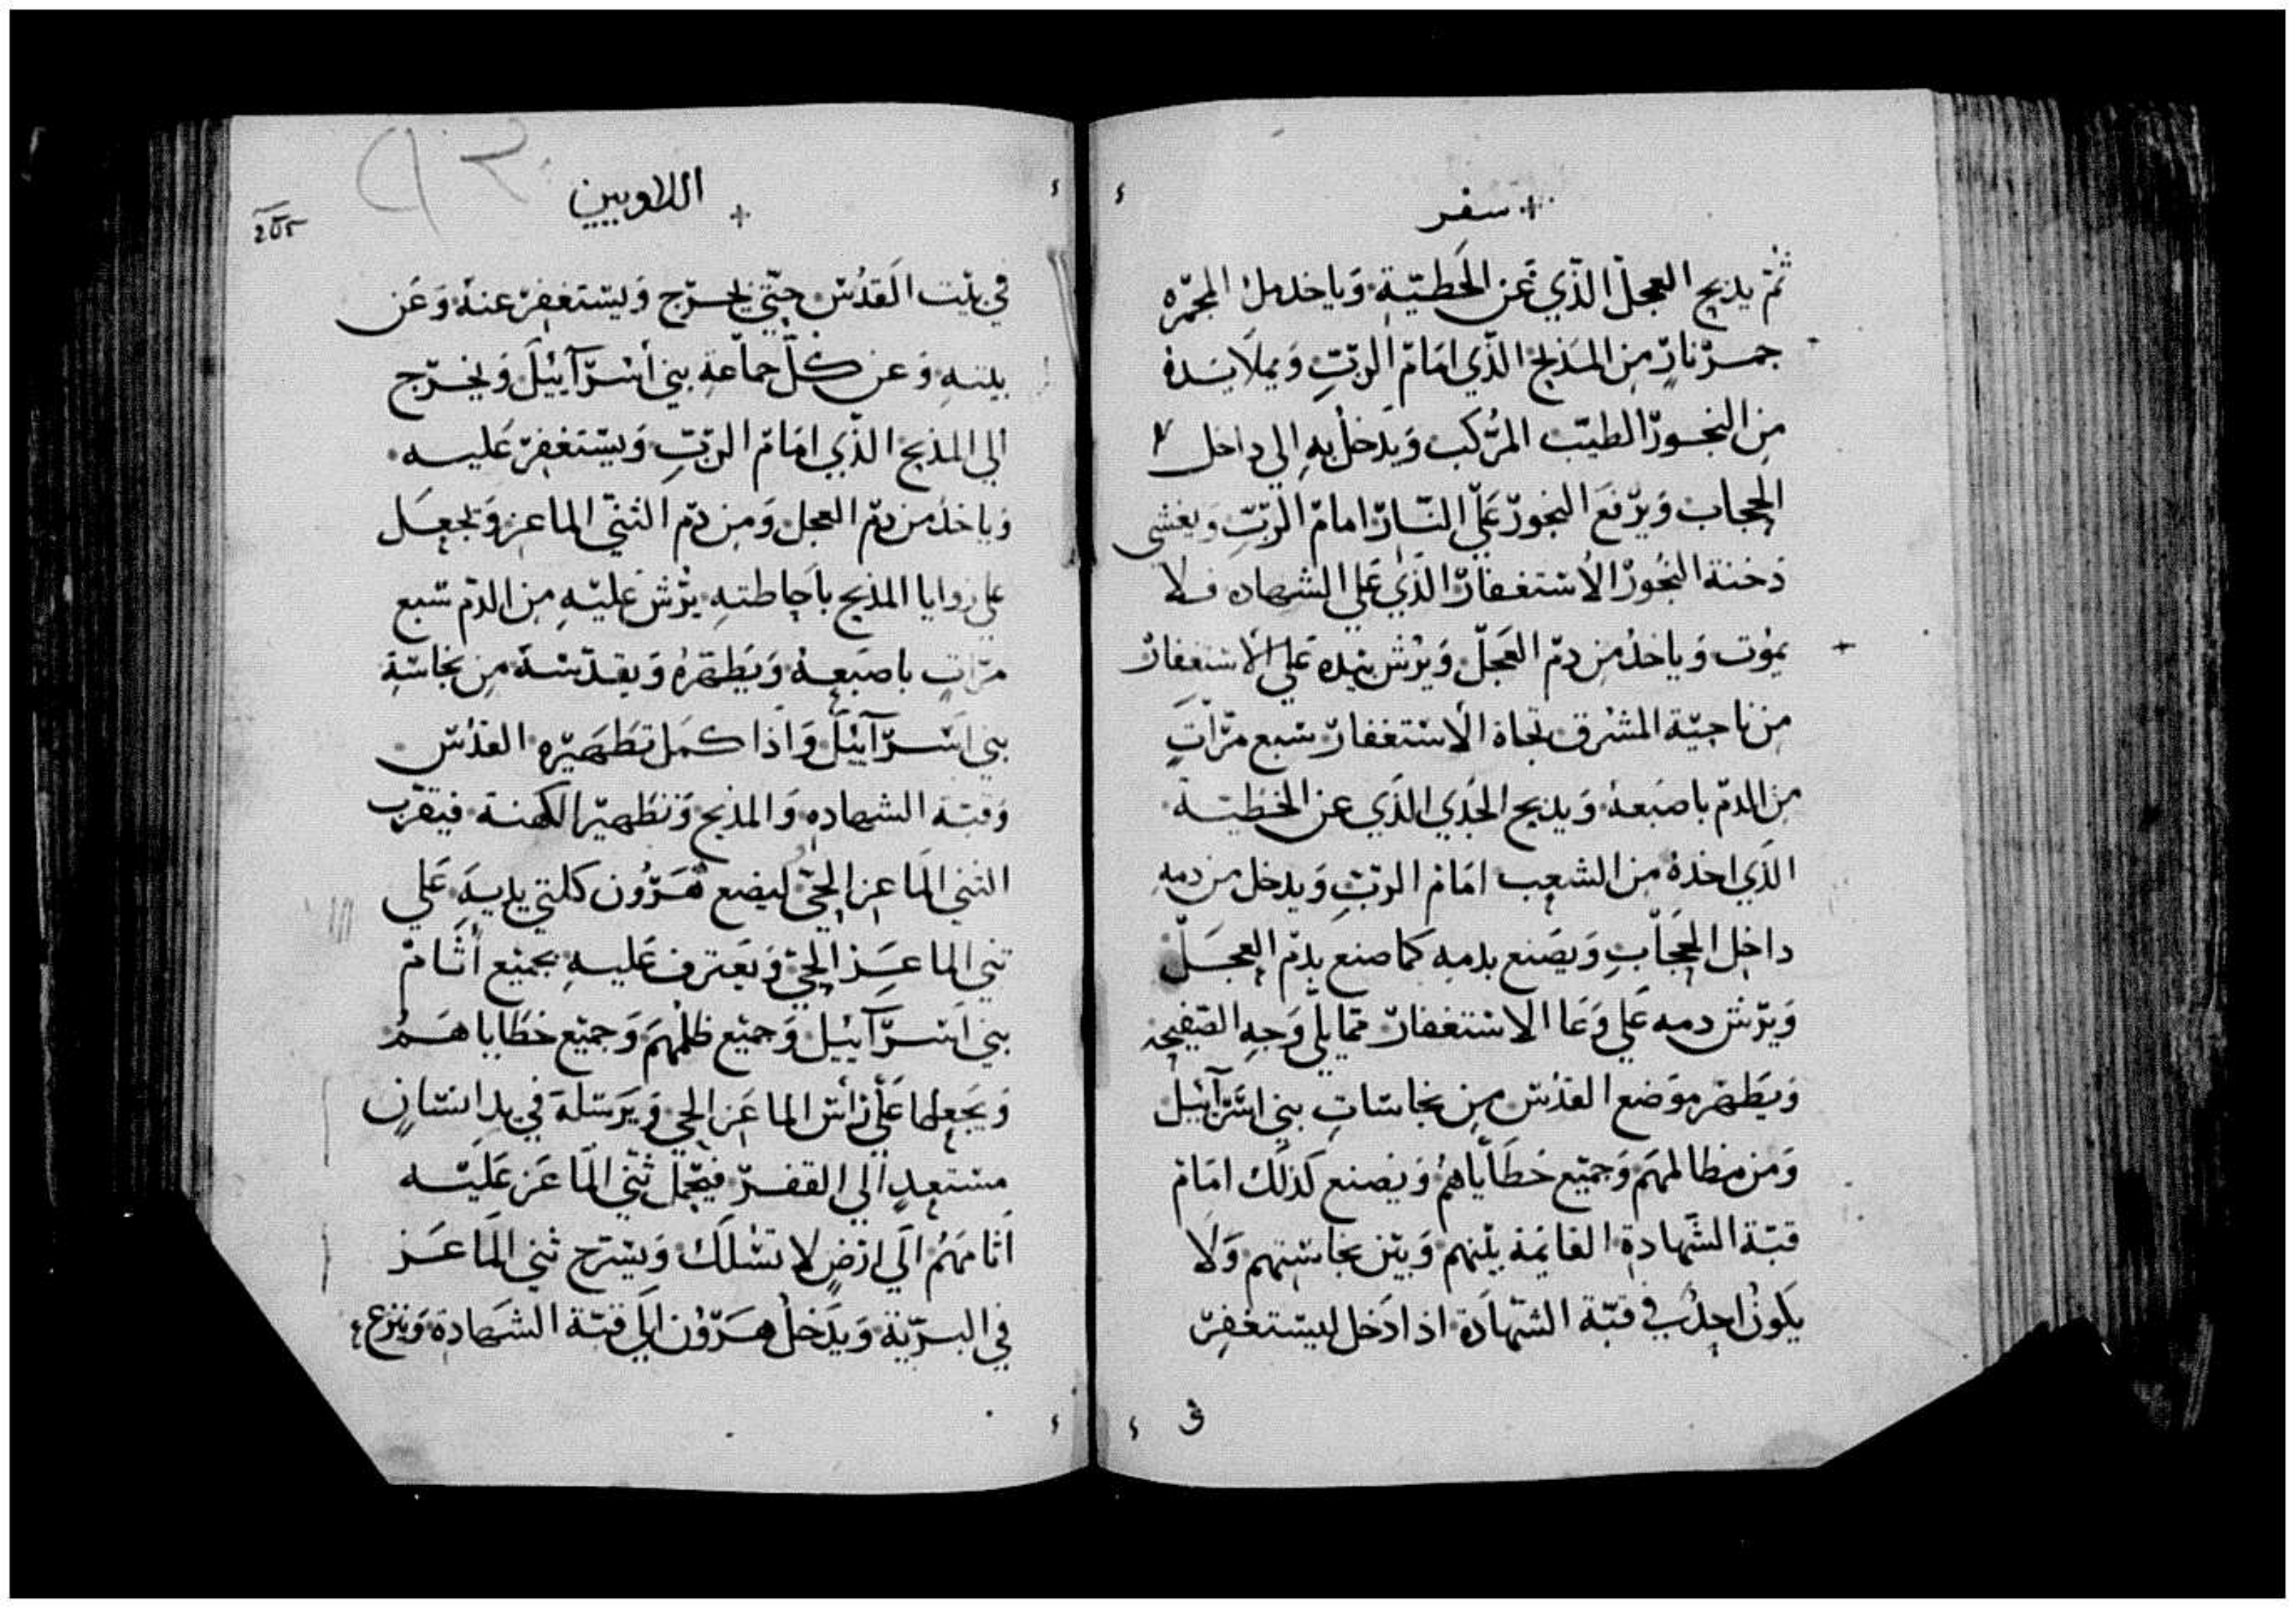 سفر
ثم يدبح العجل الذي عن الخطيّة وياخد ملء المجمره
جمر نار من المذبح الذي امام الربّ ويملا يده
من البخور الطيب المركب ويدخل به الي داخل
الحجاب ويرفع البخور علي النار امام الربّ ويغشي
دخنة البخور الاستغفار الذي علي الشهاده فلا
يموت وياخد من دم العجل ويرش بيده علي الاستغفار
من ناحية المشرق تجاة الاستغفار سبع مرّاتٍ
من الدم باصبعه ويدبح الجدي الذي عن الخطية
الذي اخده من الشعب امام الربّ ويدخل من دمه
داخل الحجاب ويصنع بدمه كما صنع بدم العجل
ويرش دمه علي وعا الاستغفار مما يلي وجه الصفيحه
ويطهر موضع القدس من نجاسات بني اسرآييل
ومن مظالمهم وجميع خطاياهم ويصنع كذلك امام
قبّة الشهادة القايمة بينهم وبين نجاستهم ولا
يكون احد في قبّة الشهادة اذا دخل ليستغفر
في
اللاويين
205
في بيت القدس حتّي يخرج ويستغفر عنه وعن
بيته وعن كلّ جماعة بني اسرآييل ويخرج
الي المذبح الذي امام الربّ ويستغفر عليه
وياخد من دم العجل ومن دم الثني الماعز ويجعل
علي زوايا المذبح باحاطته يرش عليه من الدم سبع
مرّاتٍ باصبعه ويطهره ويقدسه من نجاسة
بني اسرآييل واذا كمل تطهيره القدس
وقبة الشهاده والمذبح وتطهير الكهنة فيقرب
الثني الماعز الحيّ ليضع هرون كلتي يديه علي
ثني الماعز الحيّ ويعترف عليه بجميع أثام
بني اسرآييل وجميع ظلمهم وجميع خطاياهم
ويجعلها علي رأس الماعز الحي ويرسله في يد انسانٍ
مستعدٍ الي القفر فيحمل ثني الماعز عليه
أثامهم الي ارضٍ لا تسلك ويسرح ثني الماعز
في البريّة ويدخل هرون الي قبّة الشهادة وينزع